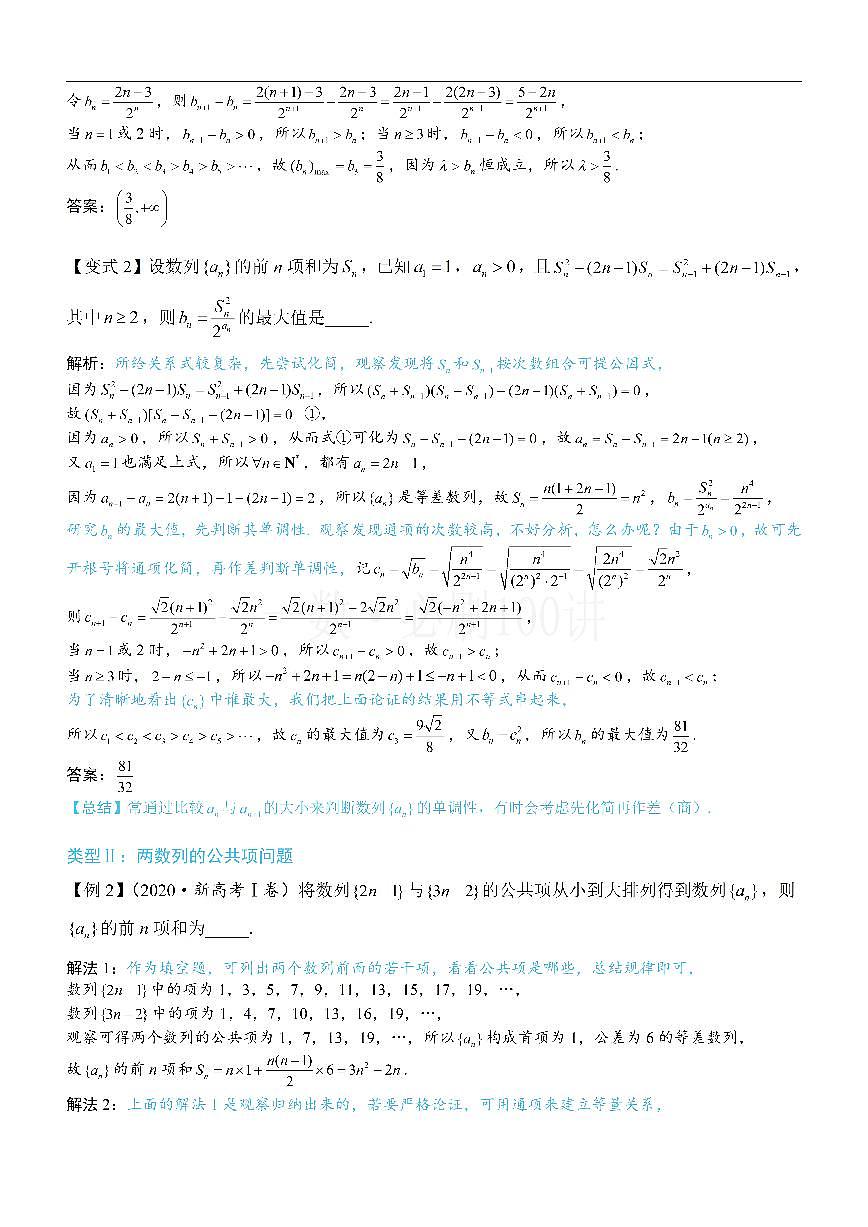 令 $b_n=\frac{2n-3}{2^n}$，则 $b_{n+1}-b_n=\frac{2(n+1)-3}{2^{n+1}}-\frac{2n-3}{2^n}=\frac{2n-1}{2^{n+1}}-\frac{2(2n-3)}{2^{n+1}}=\frac{5-2n}{2^{n+1}}$，
当 $n=1$ 或 2 时，$b_{n+1}-b_n>0$，所以 $b_{n+1}>b_n$；当 $n\geq 3$ 时，$b_{n+1}-b_n<0$，所以 $b_{n+1}<b_n$；
从而 $b_1<b_2<b_3>b_4>b_5>\cdots$，故 $(b_n)_{max}=b_3=\frac{3}{8}$，因为 $\lambda>b_n$ 恒成立，所以 $\lambda>\frac{3}{8}$.
答案：$\left(\frac{3}{8},+\infty\right)$
【变式 2】设数列 $\{a_n\}$ 的前 n 项和为 $S_n$，已知 $a_1=1$，$a_n>0$，且 $S_n^2-(2n-1)S_n=S_{n-1}^2+(2n-1)S_{n-1}$，
其中 $n\geq 2$，则 $b_n=\frac{S_n^2}{2^{a_n}}$ 的最大值是_____.
解析：所给关系式较复杂，先尝试化简，观察发现将 $S_n$ 和 $S_{n-1}$ 按次数组合可提公因式，
因为 $S_n^2-(2n-1)S_n=S_{n-1}^2+(2n-1)S_{n-1}$，所以 $(S_n+S_{n-1})(S_n-S_{n-1})-(2n-1)(S_n+S_{n-1})=0$，
故 $(S_n+S_{n-1})[S_n-S_{n-1}-(2n-1)]=0$ ①，
因为 $a_n>0$，所以 $S_n+S_{n-1}>0$，从而式①可化为 $S_n-S_{n-1}-(2n-1)=0$，故 $a_n=S_n-S_{n-1}=2n-1(n\geq 2)$，
又 $a_1=1$ 也满足上式，所以 $\forall n\in\mathbf{N}^*$，都有 $a_n=2n-1$，
因为 $a_{n+1}-a_n=2(n+1)-1-(2n-1)=2$，所以 $\{a_n\}$ 是等差数列，故 $S_n=\frac{n(1+2n-1)}{2}=n^2$，$b_n=\frac{S_n^2}{2^{a_n}}=\frac{n^4}{2^{2n-1}}$，
研究 $b_n$ 的最大值，先判断其单调性. 观察发现通项的次数较高，不好分析，怎么办呢？由于 $b_n>0$，故可先
开根号将通项化简，再作差判断单调性，记 $c_n=\sqrt{b_n}=\sqrt{\frac{n^4}{2^{2n-1}}}=\sqrt{\frac{n^4}{(2^n)^2\cdot 2^{-1}}}=\sqrt{\frac{2n^4}{(2^n)^2}}=\frac{\sqrt{2}n^2}{2^n}$，
则 $c_{n+1}-c_n=\frac{\sqrt{2}(n+1)^2}{2^{n+1}}-\frac{\sqrt{2}n^2}{2^n}=\frac{\sqrt{2}(n+1)^2-2\sqrt{2}n^2}{2^{n+1}}=\frac{\sqrt{2}(-n^2+2n+1)}{2^{n+1}}$，
当 $n=1$ 或 2 时，$-n^2+2n+1>0$，所以 $c_{n+1}-c_n>0$，故 $c_{n+1}>c_n$；
当 $n\geq 3$ 时，$2-n\leq -1$，所以 $-n^2+2n+1=n(2-n)+1\leq -n+1<0$，从而 $c_{n+1}-c_n<0$，故 $c_{n+1}<c_n$；
为了清晰地看出 $\{c_n\}$ 中谁最大，我们把上面论证的结果用不等式串起来，
所以 $c_1<c_2<c_3>c_4>c_5>\cdots$，故 $c_n$ 的最大值为 $c_3=\frac{9\sqrt{2}}{8}$，又 $b_n=c_n^2$，所以 $b_n$ 的最大值为 $\frac{81}{32}$.
答案：$\frac{81}{32}$
【总结】常通过比较 $a_n$ 与 $a_{n+1}$ 的大小来判断数列 $\{a_n\}$ 的单调性，有时会考虑先化简再作差（商）.
类型Ⅱ：两数列的公共项问题
【例 2】（2020·新高考Ⅰ卷）将数列 $\{2n-1\}$ 与 $\{3n-2\}$ 的公共项从小到大排列得到数列 $\{a_n\}$，则
$\{a_n\}$ 的前 n 项和为_____.
解法 1：作为填空题，可列出两个数列前面的若干项，看看公共项是哪些，总结规律即可，
数列 $\{2n-1\}$ 中的项为 1，3，5，7，9，11，13，15，17，19，…，
数列 $\{3n-2\}$ 中的项为 1，4，7，10，13，16，19，…，
观察可得两个数列的公共项为 1，7，13，19，…，所以 $\{a_n\}$ 构成首项为 1，公差为 6 的等差数列，
故 $\{a_n\}$ 的前 n 项和 $S_n=n\times 1+\frac{n(n-1)}{2}\times 6=3n^2-2n$.
解法 2：上面的解法 1 是观察归纳出来的，若要严格论证，可用通项来建立等量关系，